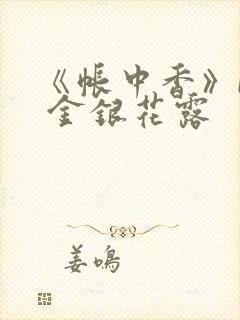 《帐中香》
金银花露
姜鸣